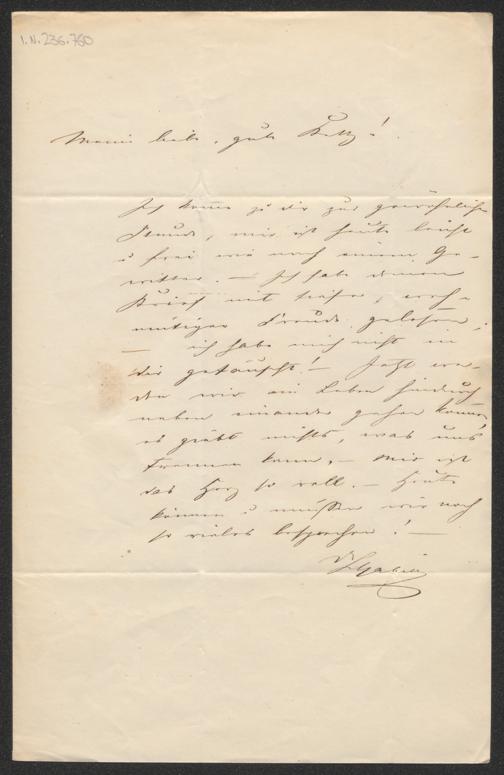 I.N. 236.760
Meine liebe, gute Betty!
Ich komme zu dir zur gewöhnlichen
Stunde, mir ist heute leicht
u frei wie nach einem Ge-
witter. — Ich habe deinen
Brief mit tiefer, weh-
mütiger Freude gelesen,
— ich habe mich nicht in
dir getäuscht! — Jetzt wer-
den wir ein Leben hindurch
neben einander gehen können,
es giebt nichts, was uns
trennen kann. — Mir ist
das Herz so voll. — Heute
können u müssen wir noch
so vieles besprechen! —